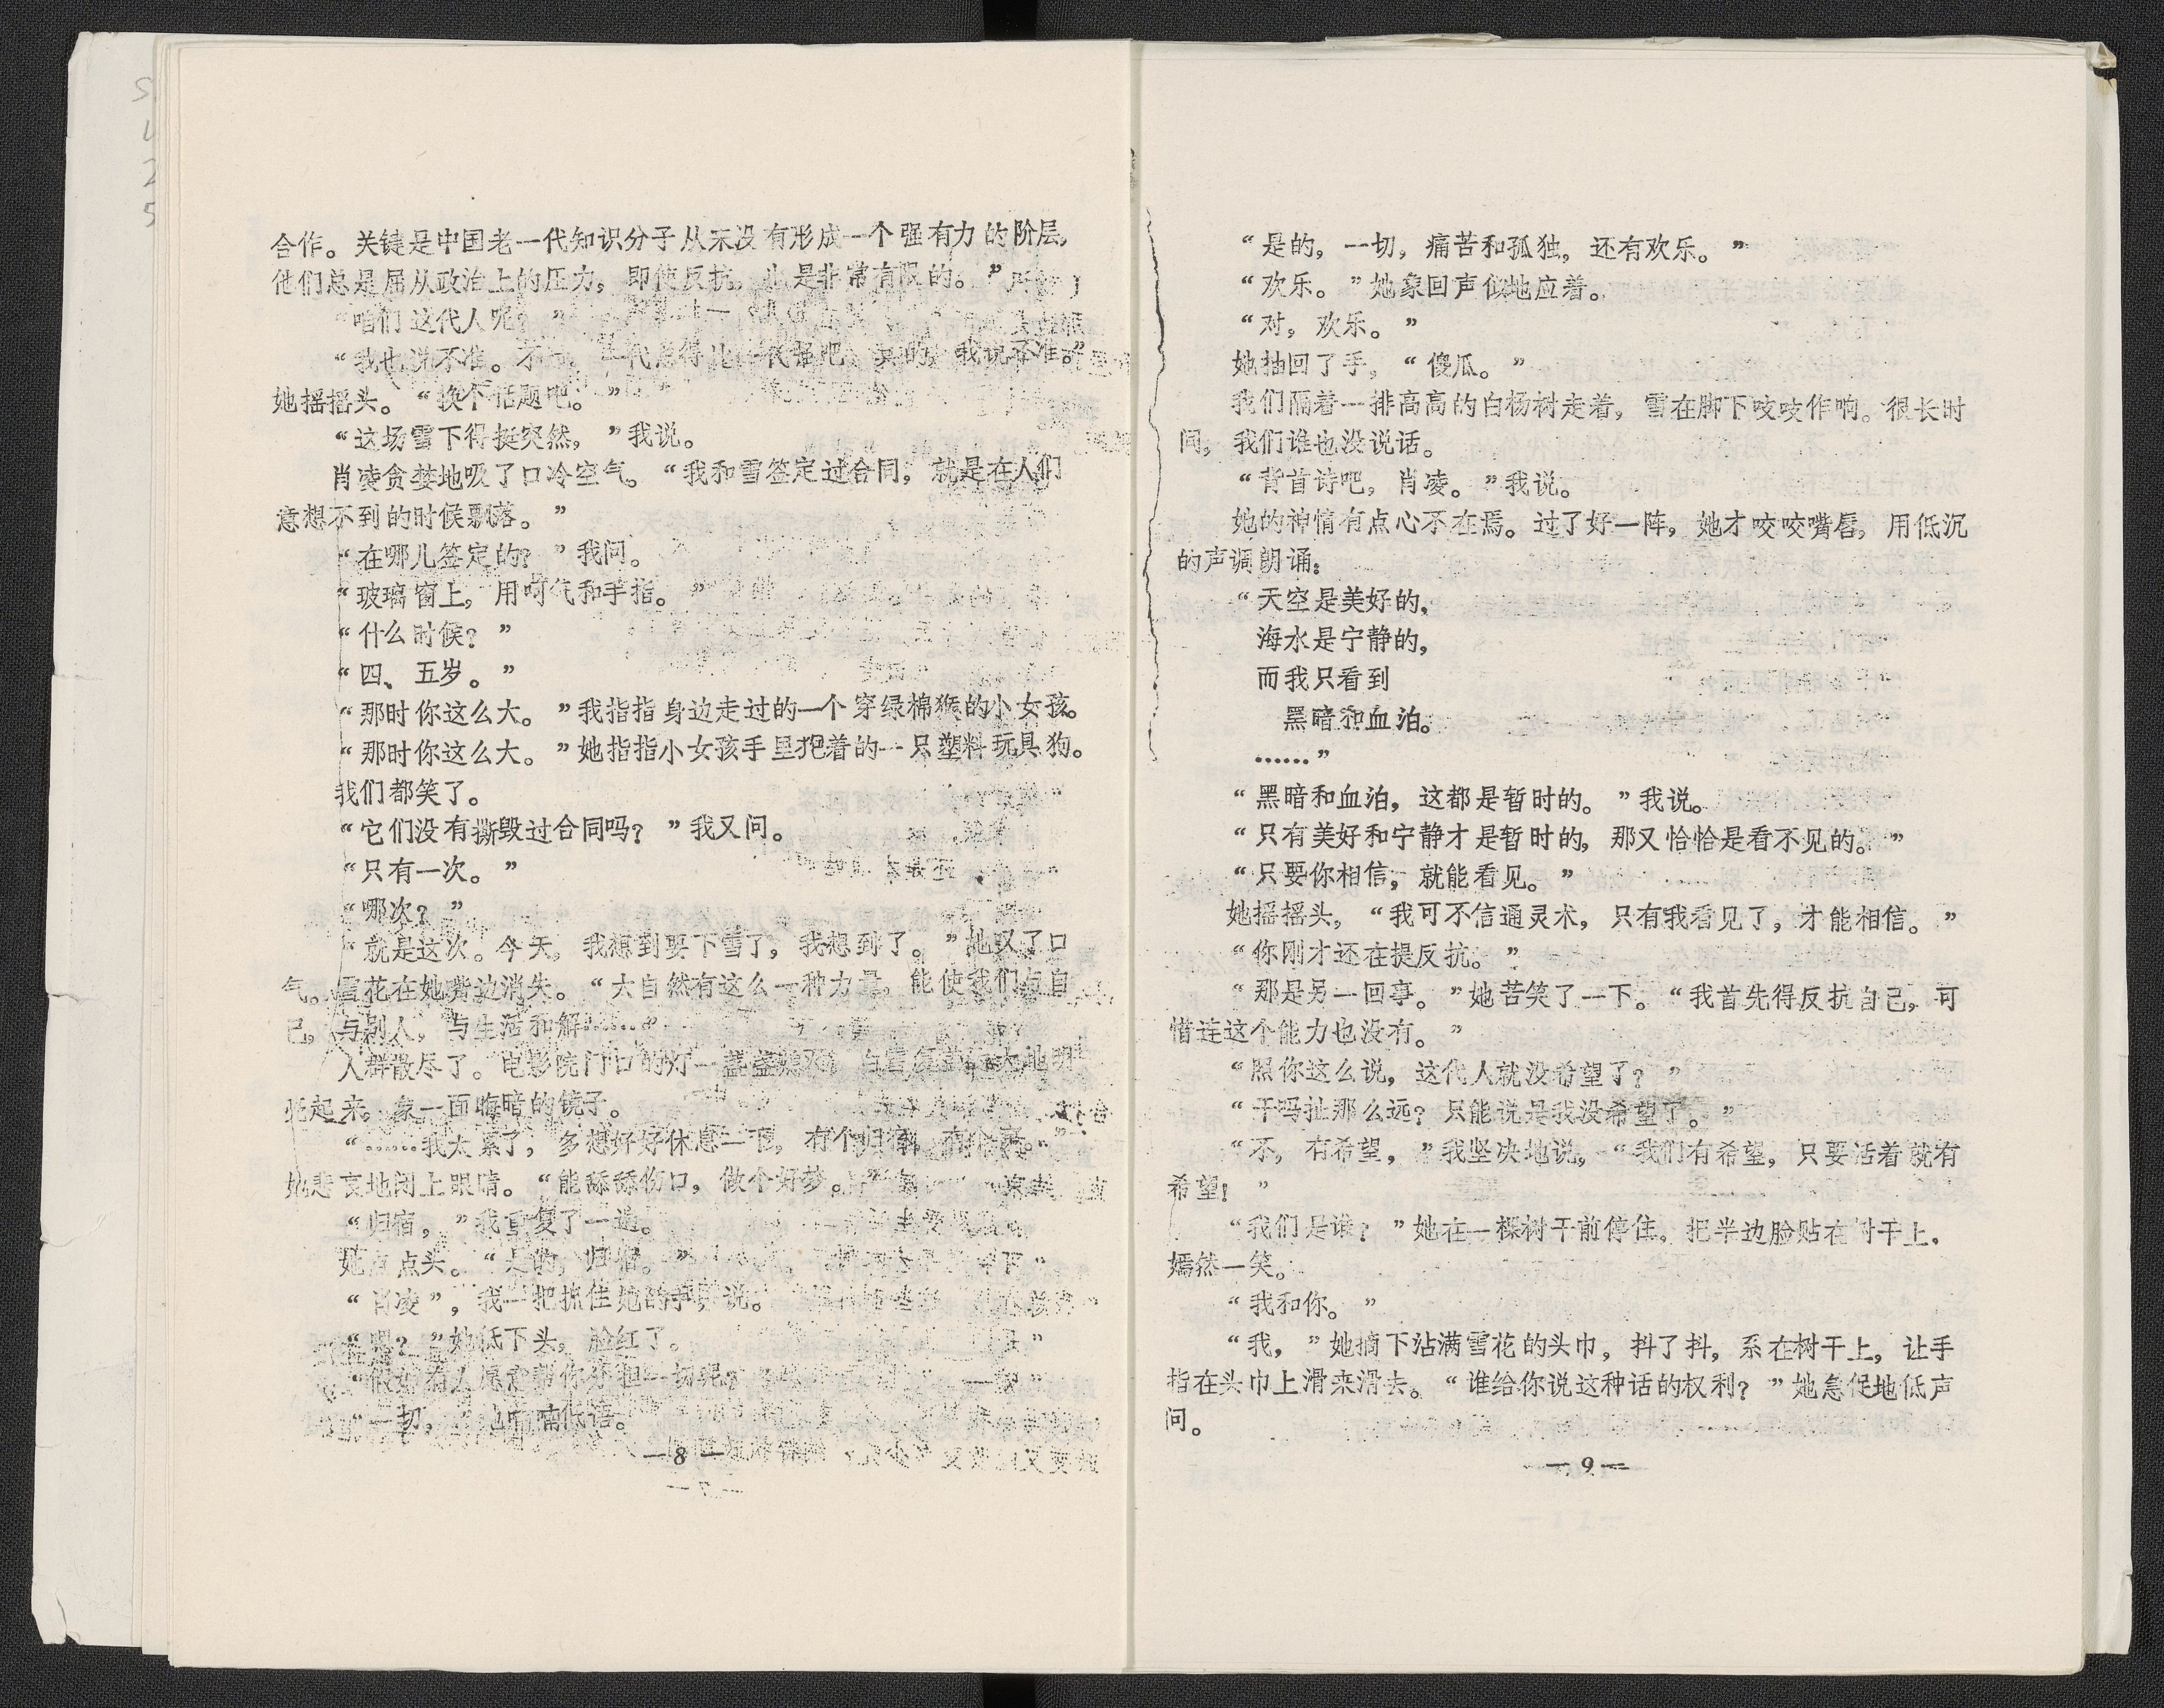 合作。关键是中国老一代知识分子从未没有形成一个强有力的阶层，
他们总是屈从政治上的压力，即使反抗，也是非常有限的。”
“咱们这代人呢？”
“我也说不准。不 一代总得比一代强吧，真的，我说不准。”
她摇摇头。“换个话题吧。”
“这场雪下得挺突然，”我说。
肖凌贪婪地吸了口冷空气。“我和雪签定过合同，就是在人们
意想不到的时候飘落。”
“在哪儿签定的？”我问。
“玻璃窗上，用呵气和手指。”
“什么时候？”
“四、五岁。”
“那时你这么大。”我指指身边走过的一个穿绿棉猴的小女孩。
“那时你这么大。”她指指小女孩手里抱着的一只塑料玩具狗。
我们都笑了。
“它们没有撕毁过合同吗？”我又问。
“只有一次。”
“哪次？”
“就是这次。今天，我想到要下雪了，我想到了。”她叹了口
气。雪花在她嘴边消失。“大自然有这么一种力量，能使我们与自
己，与别人，与生活和解……”
人群散尽了。电影院门口的灯一盏盏熄灭，白雪 大地明
亮起来，象一面晦暗的镜子。
“……我太累了，多想好好休息一下，有个归宿，有个 。”
她悲哀地闭上眼睛。“能舔舔伤口，做个好梦。”
“归宿，”我重复了一遍。
她点点头。“是的，归宿。”
“肖凌”，我一把抓住她的手，说。
“嗯？”她低下头，脸红了。
“假如有人愿意帮你分担一切呢？”
“一切，”她喃喃低语。
—8—
“是的，一切，痛苦和孤独，还有欢乐。”
“欢乐。”她象回声似地应着。
“对，欢乐。”
她抽回了手，“傻瓜。”
我们隔着一排高高的白杨树走着，雪在脚下吱吱作响。很长时
间，我们谁也没说话。
“背首诗吧，肖凌。”我说。
她的神情有点心不在焉。过了好一阵，她才咬咬嘴唇，用低沉
的声调朗诵：
“天空是美好的，
海水是宁静的，
而我只看到
黑暗和血泊。
……”
“黑暗和血泊，这都是暂时的。”我说。
“只有美好和宁静才是暂时的，那又恰恰是看不见的。”
“只要你相信，就能看见。”
她摇摇头，“我可不信通灵术，只有我看见了，才能相信。”
“你刚才还在提反抗。”
“那是另一回事。”她苦笑了一下。“我首先得反抗自己，可
惜连这个能力也没有。”
“照你这么说，这代人就没希望了？”
“干吗扯那么远？只能说是我没希望了。”
“不，有希望，”我坚决地说，“我们有希望，只要活着就有
希望！”
“我们是谁？”她在一棵树干前停住，把半边脸贴在树干上，
嫣然一笑。
“我和你。”
“我，”她摘下沾满雪花的头巾，抖了抖，系在树干上，让手
指在头巾上滑来滑去。“谁给你说这种话的权利？”她急促地低声
问。
—9—